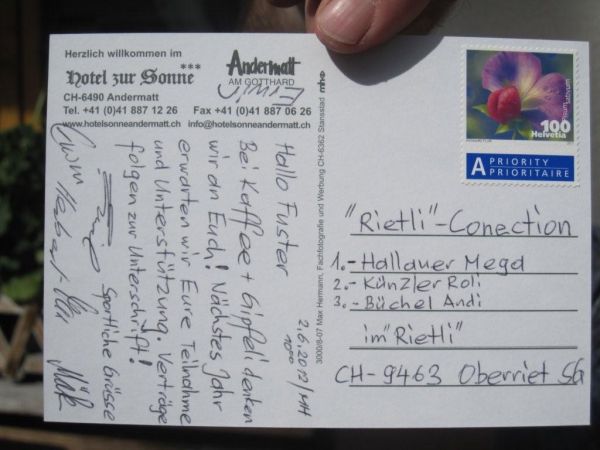 Herzlich willkommen im
Hotel zur Sonne***
CH-6490 Andermatt
Tel. +41 (0)41 887 12 26 Fax +41 (0)41 887 06 26
www.hotelsonneandermatt.ch info@hotelsonneandermatt.ch
Andermatt
AM GOTTHARD
2.6.2012/MH
10⁰⁰
Hallo Fuster
Bei Kaffee + Gipfeli denken
wir an Euch! Nächstes Jahr
erwarten wir Eure Teilnahme
und Unterstützung. Verträge
folgen zur Unterschrift!
Sportliche Grüsse
3000/8-07 Max Hermann, Fachfotografie und Werbung CH-6362 Stansstad
100
Helvetia
A PRIORITY
PRIORITAIRE
"Rietli"-Conection
1.- Hallauer Mega
2.- Künzler Roli
3.- Büchel Andi
im "Rietli"
CH-9463 Oberriet SG